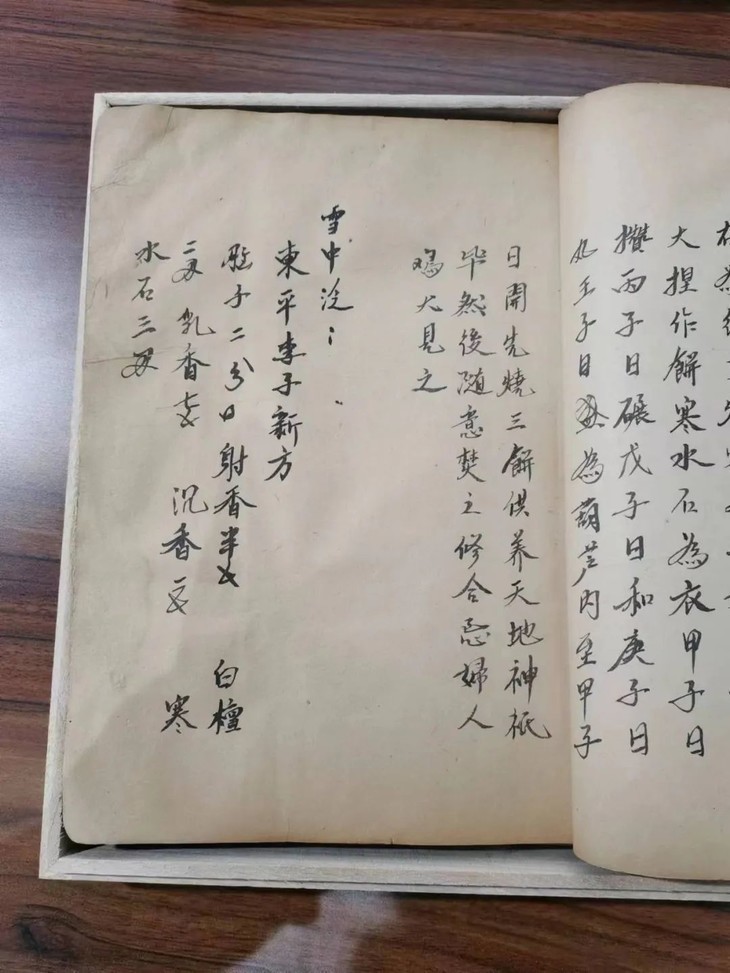 大捏作餅寒水石為衣甲子日
攢丙子日碾戊子日和庚子日
丸壬子日盛為葫芦内至甲子
日開先燒三餅供养天地神祇
毕然後随意焚之修合忌婦人
鸡犬見之
雪中泛
東平李子新方
脑子二分口射香半戋 白檀
二两 乳香七戋 沉香三戋 寒
水石三两